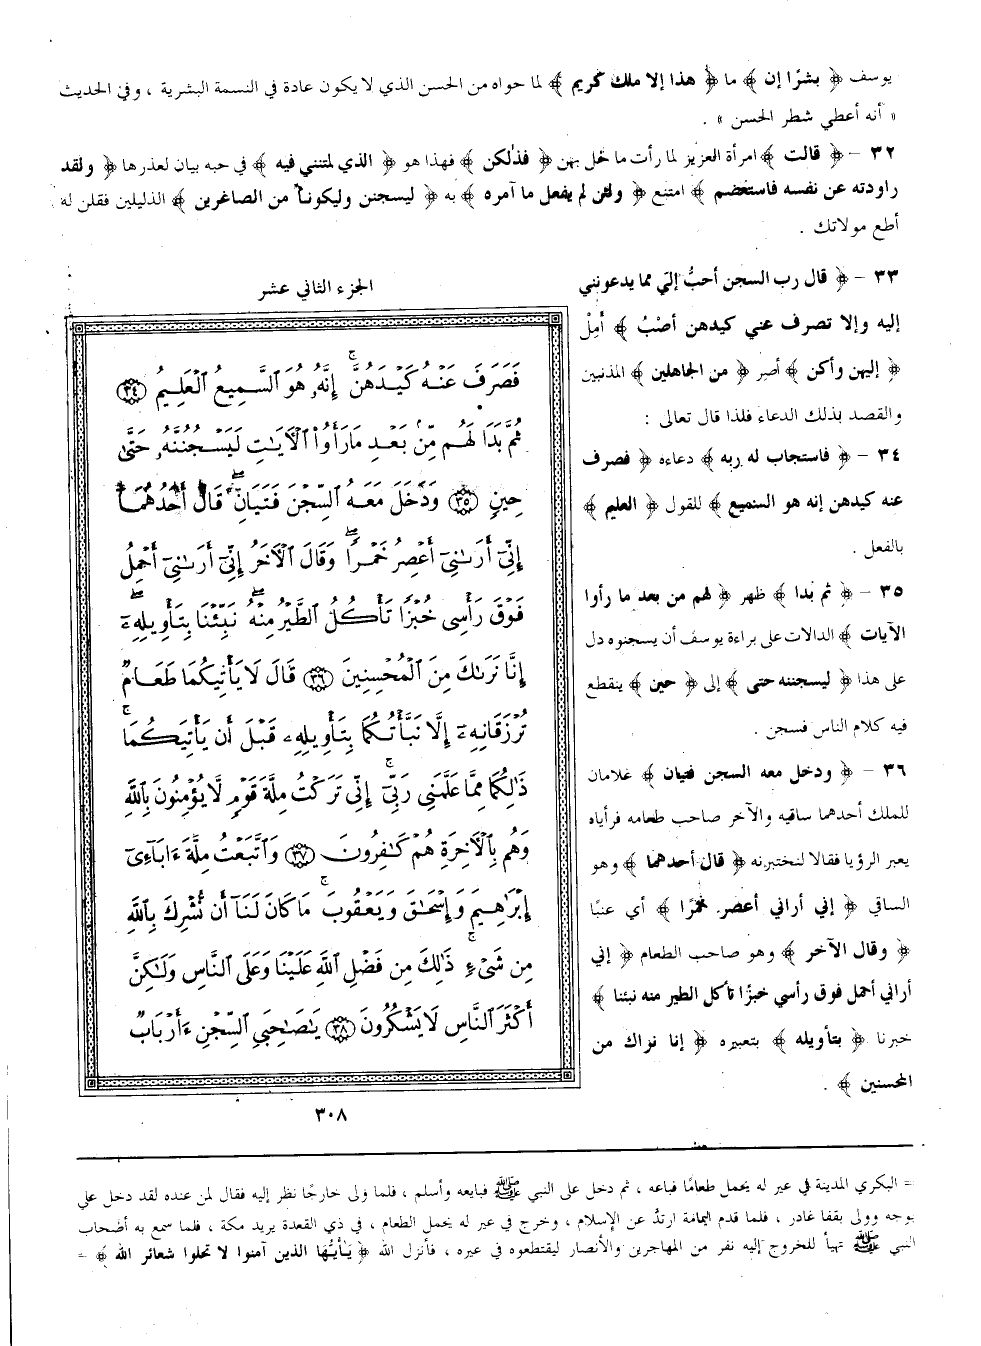 يوسف ﴿ بشرًا إن ﴾ ما ﴿ هذا إلا ملك كريم ﴾ لما حواه من الحسن الذي لا يكون عادة في النسمة البشرية ، وفي الحديث
« أنه أعطي شطر الحسن » .
٣٢ - ﴿ قالت ﴾ امرأة العزيز لما رأت ما حل بهن ﴿ فذٰلكن ﴾ فهذا هو ﴿ الذي لمتنني فيه ﴾ في حبه بيان لعذرها ﴿ ولقد
راودته عن نفسه فاستعصم ﴾ امتنع ﴿ ولئن لم يفعل ما آمره ﴾ به ﴿ ليسجنن وليكونًا من الصاغرين ﴾ الذليلين فقلن له
أطع مولاتك .
٣٣ - ﴿ قال رب السجن أحبُّ إليّ مما يدعونني
إليه وإلا تصرف عني كيدهن أصْبُ ﴾ أمِلْ
﴿ إليهن وأكن ﴾ أصِر ﴿ من الجاهلين ﴾ المذنبين
والقصد بذلك الدعاء فلذا قال تعالى :
٣٤ - ﴿ فاستجاب له ربه ﴾ دعاءه ﴿ فصرف
عنه كيدهن إنه هو السميع ﴾ للقول ﴿ العليم ﴾
بالفعل .
٣٥ - ﴿ ثم بدا ﴾ ظهر ﴿ لهم من بعد ما رأوا
الآيات ﴾ الدالات على براءة يوسف أن يسجنوه دل
على هذا ﴿ ليسجننه حتى ﴾ إلى ﴿ حين ﴾ ينقطع
فيه كلام الناس فسجن .
٣٦ - ﴿ ودخل معه السجن فتيان ﴾ غلامان
للملك أحدهما ساقيه والآخر صاحب طعامه فرأياه
يعبر الرؤيا فقالا لنختبرنه ﴿ قال أحدهما ﴾ وهو
الساقي ﴿ إني أراني أعصر خمرًا ﴾ أي عنبًا
﴿ وقال الآخر ﴾ وهو صاحب الطعام ﴿ إني
أراني أحمل فوق رأسي خبزًا تأكل الطير منه نبئنا ﴾
خبرنا ﴿ بتأويله ﴾ بتعبيره ﴿ إنا نراك من
المحسنين ﴾ .
الجزء الثاني عشر
فَصَرَفَ عَنْهُ كَيْدَهُنَّ ۚ إِنَّهُۥ هُوَ ٱلسَّمِيعُ ٱلْعَلِيمُ ﴿٣٤﴾
ثُمَّ بَدَا لَهُم مِّنۢ بَعْدِ مَا رَأَوُا۟ ٱلْآيَٰتِ لَيَسْجُنُنَّهُۥ حَتَّىٰ
حِينٍ ﴿٣٥﴾ وَدَخَلَ مَعَهُ ٱلسِّجْنَ فَتَيَانِ ۖ قَالَ أَحَدُهُمَآ
إِنِّىٓ أَرَىٰنِىٓ أَعْصِرُ خَمْرًا ۖ وَقَالَ ٱلْآخَرُ إِنِّىٓ أَرَىٰنِىٓ أَحْمِلُ
فَوْقَ رَأْسِى خُبْزًا تَأْكُلُ ٱلطَّيْرُ مِنْهُ ۖ نَبِّئْنَا بِتَأْوِيلِهِۦٓ ۖ
إِنَّا نَرَىٰكَ مِنَ ٱلْمُحْسِنِينَ ﴿٣٦﴾ قَالَ لَا يَأْتِيكُمَا طَعَامٌ
تُرْزَقَانِهِۦٓ إِلَّا نَبَّأْتُكُمَا بِتَأْوِيلِهِۦ قَبْلَ أَن يَأْتِيَكُمَا ۚ
ذَٰلِكُمَا مِمَّا عَلَّمَنِى رَبِّىٓ ۚ إِنِّى تَرَكْتُ مِلَّةَ قَوْمٍ لَّا يُؤْمِنُونَ بِٱللَّهِ
وَهُم بِٱلْآخِرَةِ هُمْ كَٰفِرُونَ ﴿٣٧﴾ وَٱتَّبَعْتُ مِلَّةَ ءَابَآءِىٓ
إِبْرَٰهِيمَ وَإِسْحَٰقَ وَيَعْقُوبَ ۚ مَا كَانَ لَنَآ أَن نُّشْرِكَ بِٱللَّهِ
مِن شَىْءٍ ۚ ذَٰلِكَ مِن فَضْلِ ٱللَّهِ عَلَيْنَا وَعَلَى ٱلنَّاسِ وَلَٰكِنَّ
أَكْثَرَ ٱلنَّاسِ لَا يَشْكُرُونَ ﴿٣٨﴾ يَٰصَٰحِبَىِ ٱلسِّجْنِ ءَأَرْبَابٌ
٣٠٨
= البكري المدينة في عير له يحمل طعامًا فباعه ، ثم دخل على النبي ﷺ فبايعه وأسلم ، فلما ولى خارجًا نظر إليه فقال لمن عنده لقد دخل علي
بوجه وولى بقفا غادر ، فلما قدم اليمامة ارتدَّ عن الإسلام ، وخرج في عير له يحمل الطعام ، في ذي القعدة يريد مكة ، فلما سمع به أصحاب
النبي ﷺ تهيأ للخروج إليه نفر من المهاجرين والأنصار ليقتطعوه في عيره ، فأنزل الله ﴿ يَٰأيُّها الذين آمنوا لا تحلوا شعائر الله ﴾ =